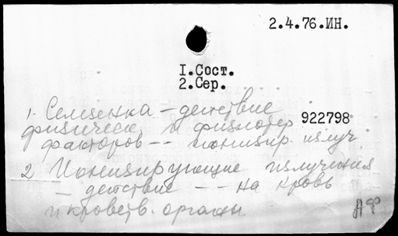 2.4.76.ИН.
I.Сост.
2.Сер.
1. Селезенка – действие
физическ. и физиотер 922798
факторов – – ионизир. излуч.
2 Ионизирующие излучения
– действие – – на кровь
и кроветв. органы